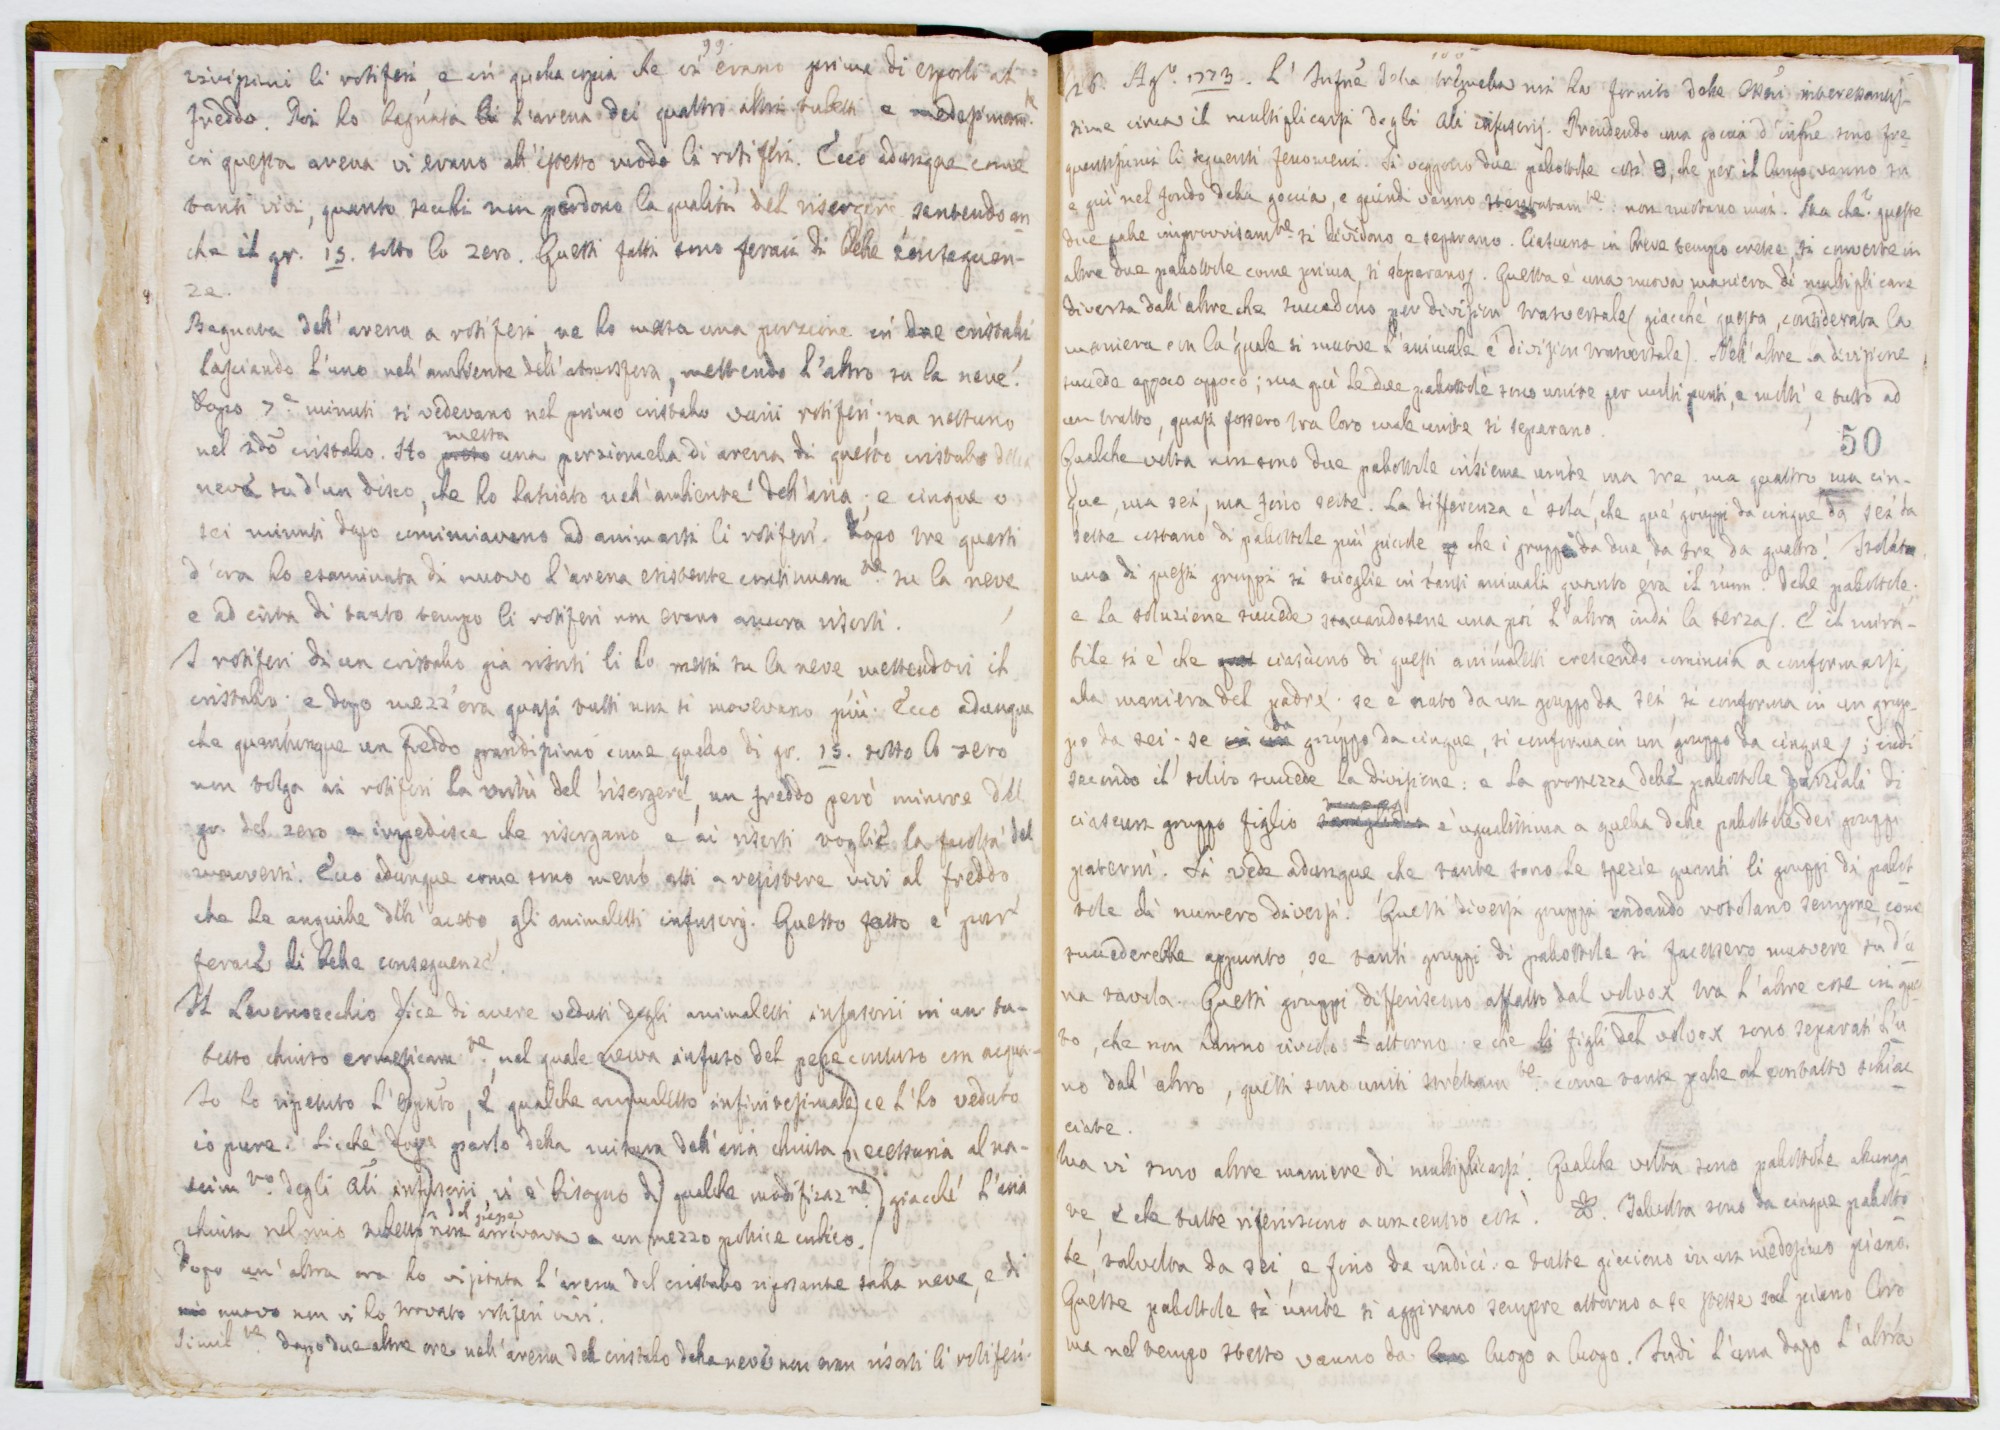 99
vivissimi li rotiferi, e in quella copia che vi erano prima di esporli al
freddo. Poi ho bagnata li l'arena dei quattro altri tubetti e medesimam.te
in questa arena vi erano all'istesso modo li rotiferi. Ecco adunque come
tanti vivi, quanto secchi non perdono la qualità del risorgere sentendo an
che il gr. 15. sotto lo zero. Questi fatti sono feraci di belle conseguen-
ze.
Bagnata dell'arena a rotiferi ne ho messa una porzione in due cristalli
lasciando l'uno nell'ambiente dell'atmosfera, mettendo l'altro su la neve.
Dopo 7 minuti si vedevano nel primo cristallo varii rotiferi; ma nessuno
nel 2do cristallo. Ho messa una porzioncella di arena di questo cristallo della
neve su d'un disco, che ho lasciato nell'ambiente dell'aria; e cinque o
sei minuti dopo cominciavano ad animarsi li rotiferi. Dopo tre quarti
d'ora ho esaminata di nuovo l'arena esistente continuam.te su la neve
e ad onta di tanto tempo li rotiferi non erano ancora risorti.
I rotiferi di un cristallo già risorti li ho messi su la neve mettendovi il
cristallo; e dopo mezz'ora quasi tutti non si movevano più. Ecco adunque
che quantunque un freddo grandissimo come quello di gr. 15. sotto lo zero
non tolga ai rotiferi la virtù del risorgere, un freddo però minore del
gr. del zero impedisce che risorgano e ai risorti toglie la facoltà del
muoversi. Ecco adunque come sono meno atti a resistere vivi al freddo
che le anguille dell'aceto gli animaletti infusorj. Questo fatto è pur
ferace di belle conseguenze.
Il Levenoecchio dice di avere veduti degli animaletti infusorii in un tu-
betto chiuso ermeticam.te, nel quale aveva infuso del pepe contuso con acqua.
Io ho ripetuto l'esperito, e qualche animaletto infinitesimale ce l'ho veduto
io pure. Sicchè dove parlo della misura dell'aria chiusa necessaria al na-
scim.to degli ali infusorii vi è bisogno di qualche modificaz.ne, giacchè l'aria
chiusa nel mio tubetto non arrivava a un mezzo pollice cubico.
Dopo un'altra ora ho visitata l'arena del cristallo riposante sulla neve, e di
nuovo non vi ho trovato rotiferi vivi.
Simil.te dopo due altre ore nell'arena del cristallo della neve non eran risorti li rotiferi.
100
26. Ag.o 1773. L'Infne della tremella mi ha fornito delle Ossni interessantis-
sime circa il multiplicarsi degli ali infusorj. Prendendo una goccia d'infne sono fre
quentissimi li seguenti fenomeni. Si veggono due pallottole così 8, che per il lungo vanno su
e giù nel fondo della goccia, e quindi vanno : non mutano mai. Ma che? queste
due palle improvvisam.te si dividono e separano. Ciascuna in breve tempo cresce, si converte in
altre due pallottole come prima, si separano. Questa è una nuova maniera di multiplicare
diversa dall'altre che succedono per division trasversale (giacchè questa, considerata la
maniera con la quale si muove l'animale è division trasversale). Nell'altre la divisione
succede appoco appoco; ma quì le due pallottole sono unite per molti punti, e molti, e tutto ad
un tratto, quasi fossero tra loro male unite si separano.
50
Qualche volta non sono due pallottole insieme unite ma tre, ma quattro ma cin-
que, ma sei, ma fino sette. La differenza è sola, che que' gruppi da cinque da sei da
sette costano di pallottole più picciole che i gruppi da due da tre da quattro. Isolato
uno di questi gruppi si scioglie in tanti animali quanto era il num.o delle pallottole;
e la soluzione succede staccandosene una poi l'altra indi la terza. E il mira-
bile si è che ciascuno di questi animaletti crescendo comincia a conformarsi
alla maniera del padre. se è nato da un gruppo da sei, si conforma in un grup-
po da sei. se da gruppo da cinque, si conforma in un gruppo da cinque; indi
secondo il solito succede la divisione: e la grossezza delle pallottole parziali di
ciascun gruppo figlio è ugualissima a quella delle pallottole dei gruppi
paterni. Si vede adunque che tante sono le spezie quanti li gruppi di pallot
tole di numero diversi. Questi diversi gruppi andando rotolano sempre, come
succederebbe appunto, se tanti gruppi di pallottole si facessero muovere su d'u
na tavola. Questi gruppi differiscono affatto dal volvox tra l'altre cose in que
to, che non hanno circolo attorno. e che li figli del volvox sono separati l'u
no dall'altro, questi sono uniti strettam.te come tante palle al contatto schiac
ciate.
Ma vi sono altre maniere di multiplicarsi. Qualche volta sono pallottole allunga
te, e che tutte riferiscono a un centro così. Talvolta sono da cinque pallotto
le, talvolta da sei, e fino da undici. e tutte giacciono in un medesimo piano.
Queste pallottole sì unite si aggirano sempre attorno a se stesse sul piano loro
ma nel tempo stesso vanno da luogo a luogo. Indi l'una dopo l'altra